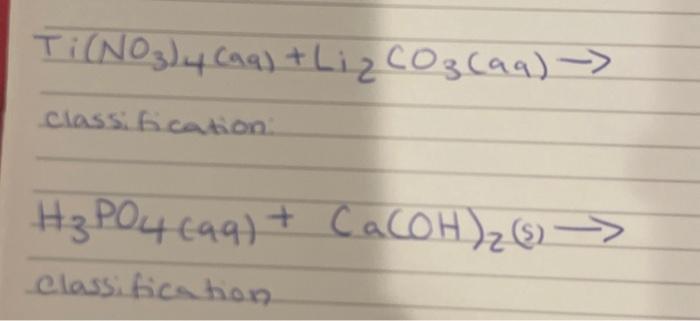 Ti(NO3)4(aq) + Li2CO3(aq) →
classification:
H3PO4(aq) + Ca(OH)2(s) →
classification